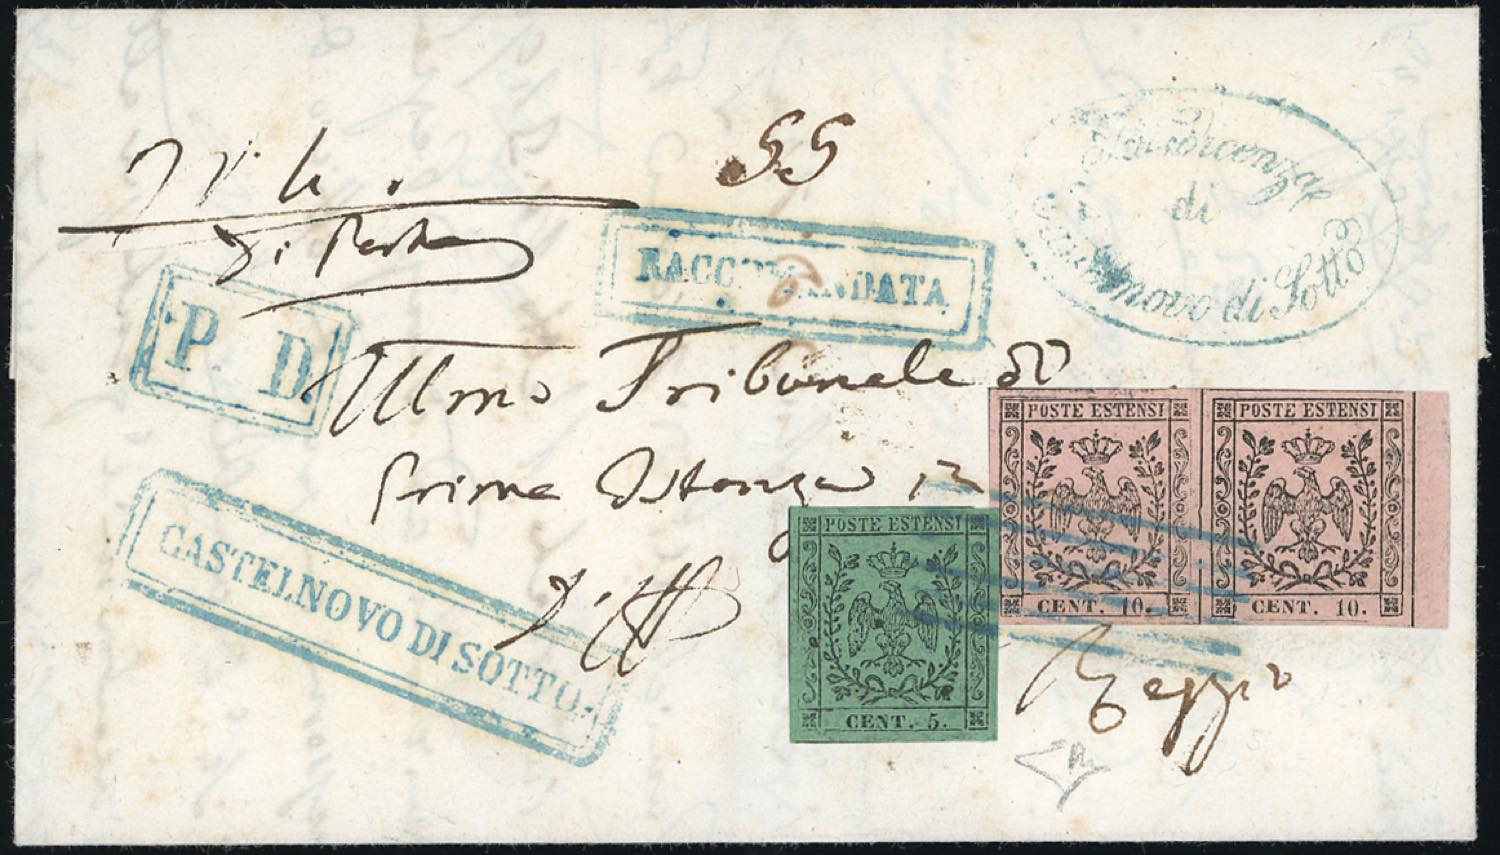 55
RACCOMANDATA
di
Castelnovo di Sotto
P. D.
Illmo Tribunale di
Prima Istanza in
POSTE ESTENSI
CENT. 10.
POSTE ESTENSI
CENT. 10.
POSTE ESTENSI
CENT. 5.
CASTELNOVO DI SOTTO.
Reggio